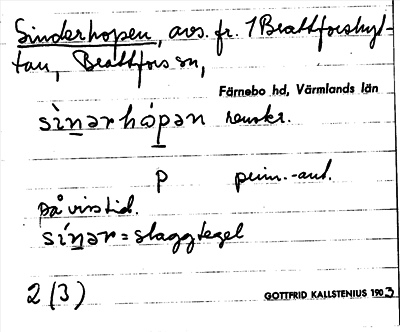 Sinderhopen, avs. fr. 1 Brattforshyt-
tan, Brattfors sn,
Färnebo hd, Värmlands län
sìnərhópən renskr.
p prim.-ant.
på viss tid.
sínər = slaggtegel
2 (3)
GOTTFRID KALLSTENIUS 1903